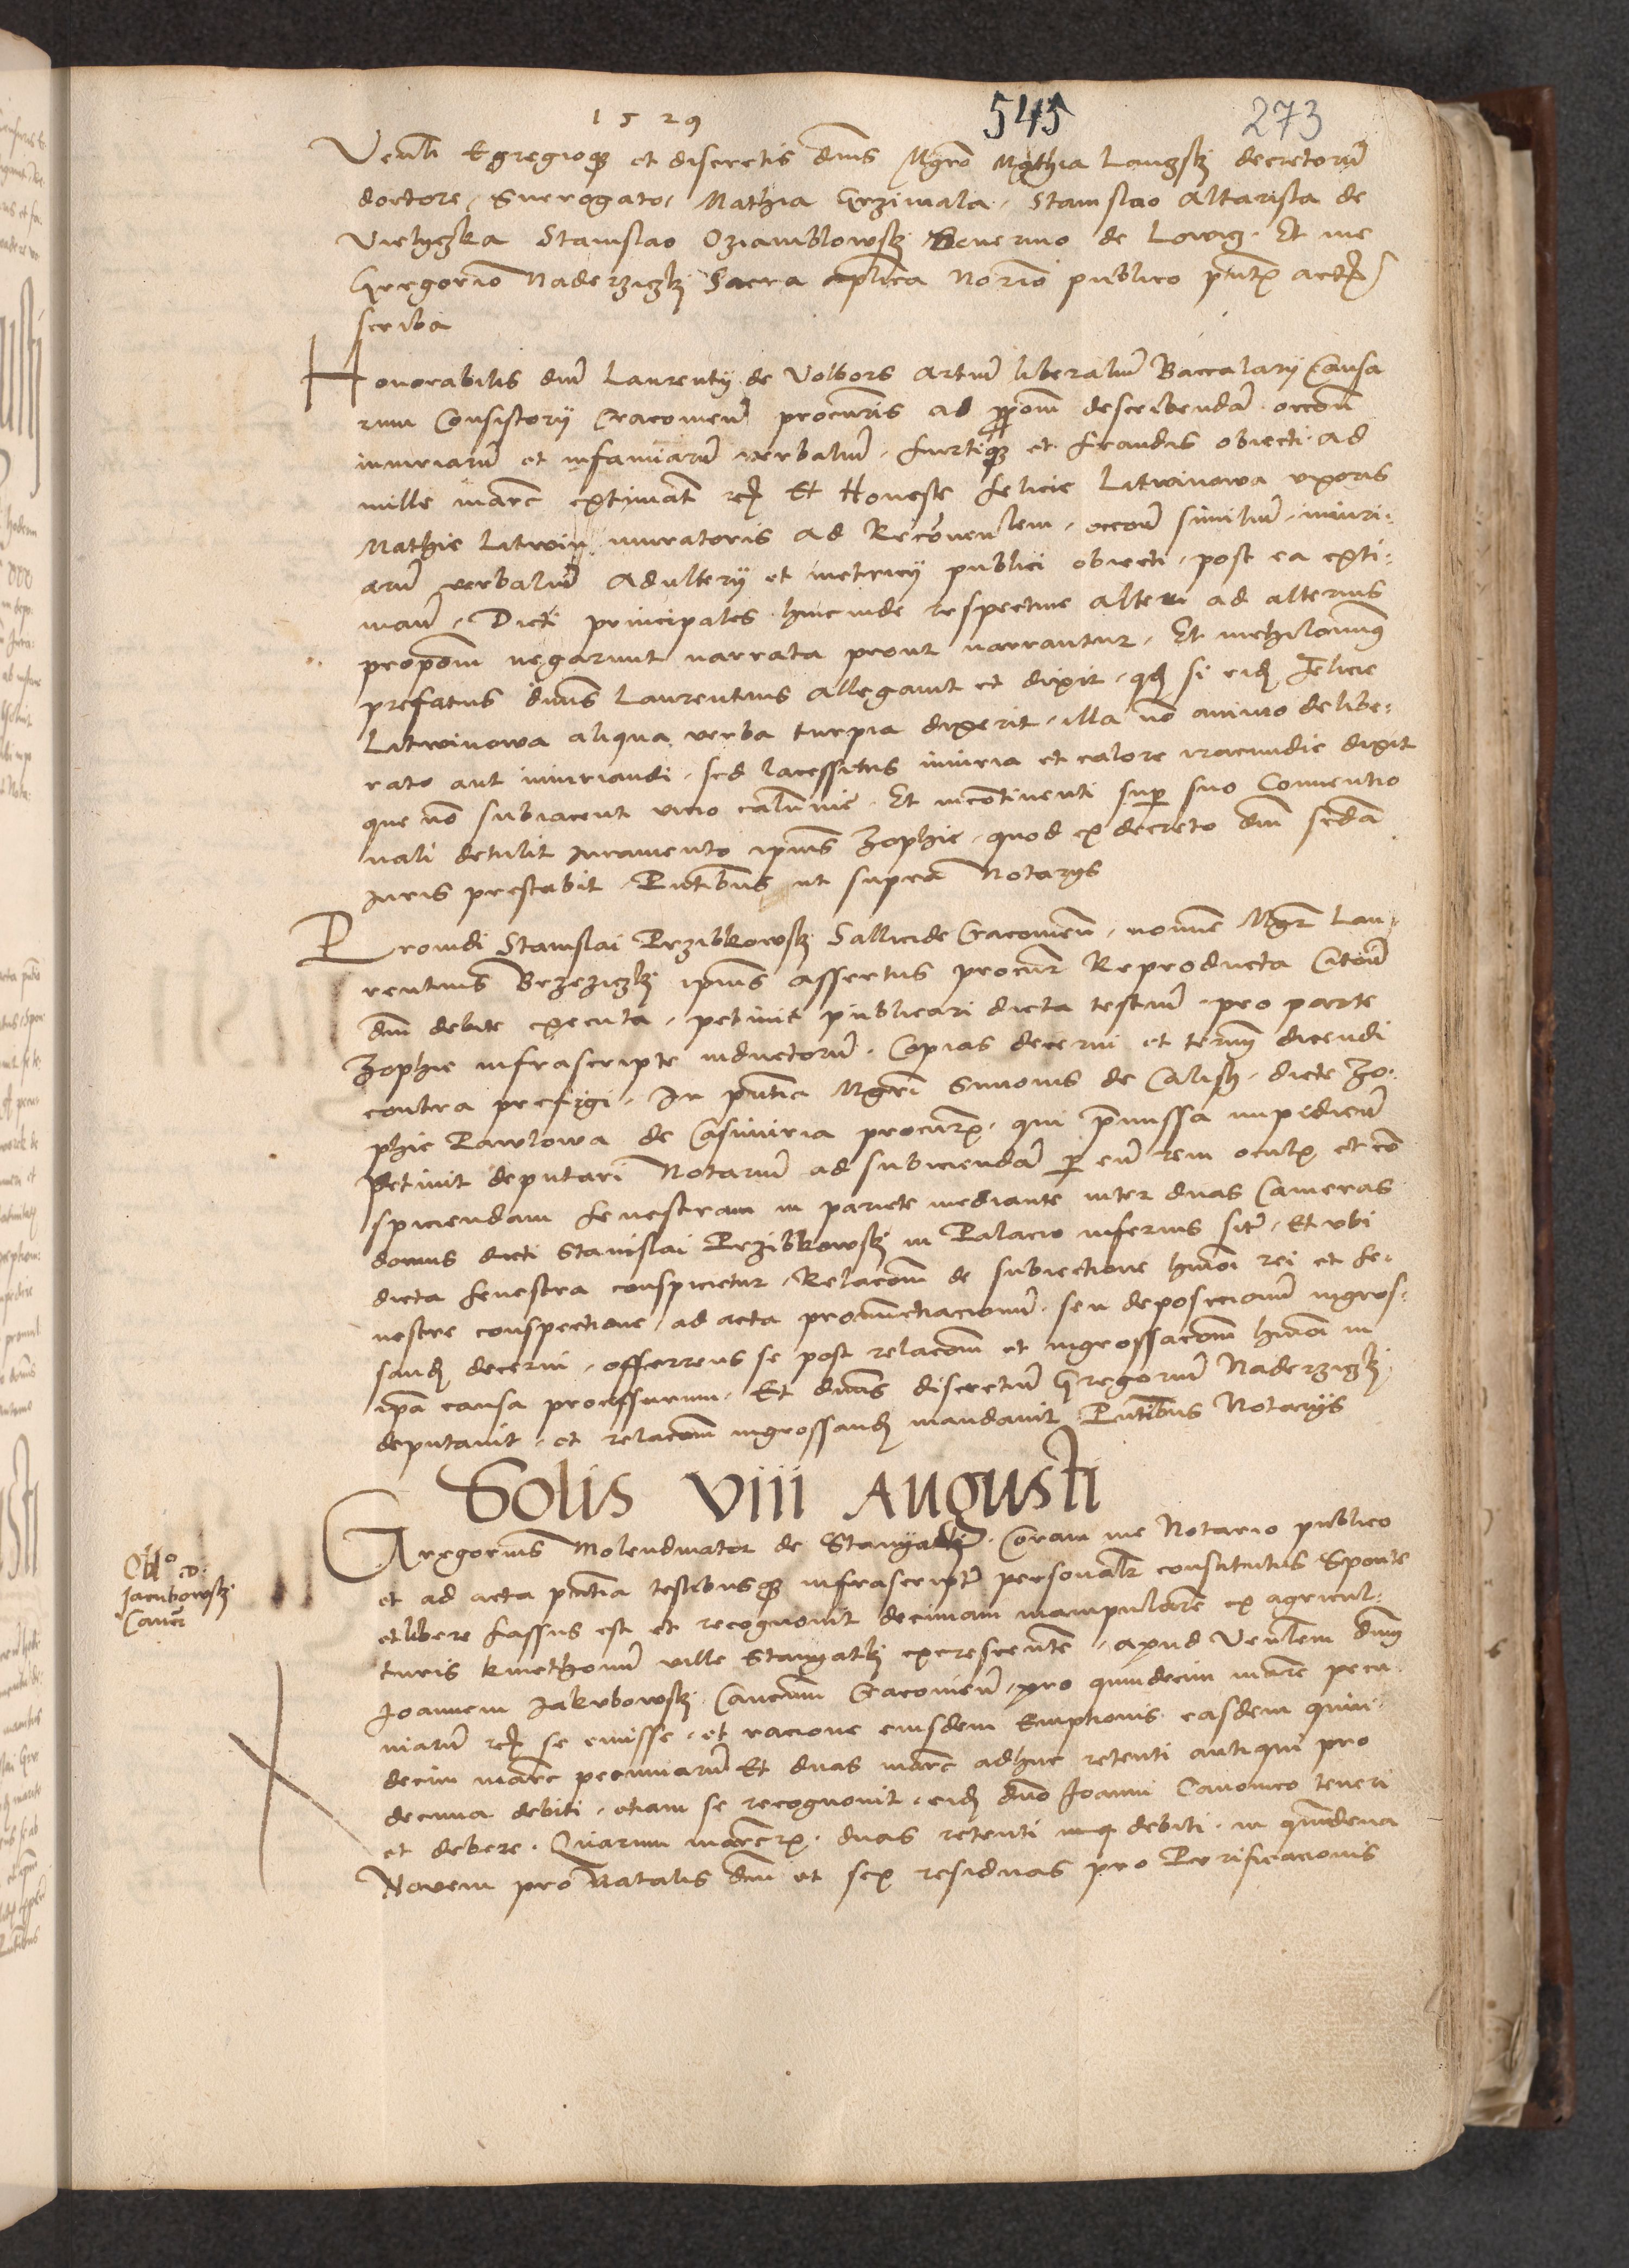 1529
545
273
Venli Egregioq et discretis dnis Mgro Mathia Laugsky decretorum
doctore, Surrogato, Mathia Grzimala, Stanislao Altarista de
Vielyczka Stanislao Oziamblowsky Severino de Lowig. Et me
Gregorio Naderzizky Sacra aplica Norio publico pntiu actor
scriba
Honorabilis dni Laurentij de Volbors artium liberalium Baccalarij Causa
rum Consistorij Cracovien procuris ad pposom describendam occone
iniuriarum et infamiarum verbalium, furtiq et fraudis obiecti ad
mille marc extimat rc Et Honeste felicie Litwinowa uxoris
Mathie Litwin muratoris ad Reconvenlem, occone similium, iniuri-
arum verbalium adulterij et metricij publici obiecti, post ea exti-
man, Dicti principales hincinde respective alteri ad alterius
propoom negarunt narrata prout narrantur, Et nichilominus
prefatus dnus Laurentius allegavit et dixit, qd si eid Felicie
Litwinowa aliqua verba turpia dixerit, illa no animo delibe-
rato aut iniuriandi, sed lacessitus iniuria et calore iracundie dixit
que no subiacent vicio calumnie. Et incontinenti sup suo Conventio
nali detulit Iuramento ipius Zophie, quod ex decreto dni scdam
Iuris prestabit, Pntibus ut supra Notarys
Providi Stanislai Przibkowsky Sallicide Cracovien, nomine Mgr Lau-
rentius Brzeziczky ipius assertus procur Reproducta Citone
dni debite executa, petivit publicari dicta testium, pro parte
Zophie infrascripte inductorum. Copias decerni et termin dicendi
contra prefigi, In pntia Mgri Simonis de Calish, dicte Zo-
phie Pawlowa de Casimiria procuris, qui premissa impedien
petivit deputari Notarium ad subiciendam p eum rem oculis et con
spiciendam fenestram in pariete mediante inter duas Cameras
domus dicti Stanislai Przibkowsky in Palacio inferius sitam, Et ubi
dicta fenestra conspicietur, Relacom de subiectione humoi rei et fe-
nestre conspectione, ad acta pronunctiacionum, seu deposicionum ingros-
sand decerni, offerrens se post relacom et ingrossacom humoi in
ipa causa processurum, Et dnus discretum Gregorium Naderzizky
deputavit, et relacom ingrossand mandavit Pntibus Notarijs
Solis VIII Augusti
Gregorius Molendinator de Stanyatky. Coram me Notario publico
et ad acta pntia testibusq infrascriptis personalr constitutus Sponte
et libere fassus est et recognovit decimam manipularem ex agricul-
turis kmethonum ville Stanyatky excrescentem, apud Venlem dnum
Joannem Jakubowsky Canonm Cracovien, pro quindecim marc pecu-
niarum rc se emisse, et racione eiusdem Emptionis easdem quin-
decim marc pecuniarum Et duas marc adhuc retenti antiqui pro
decima debiti, etiam se recognovit, eid dno Joanni Canonico teneri
et debere. Quarum marcrz duas retenti debiti in quindena
Novem pro Natalis dni et sex residuas pro Purificacionis
Obl D:
Jacubowsky
Canon